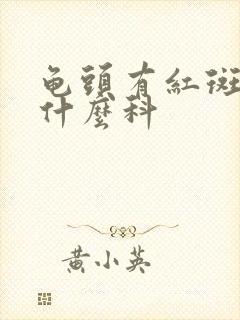 龟頭有紅斑
什麼科
黄小英